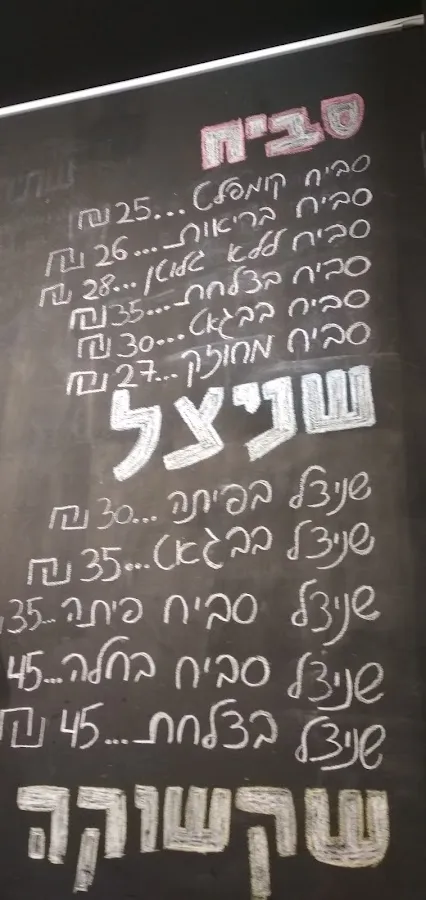 סביח
סביח קומפלט...25 ₪
סביח בריאות...26 ₪
סביח ללא גלוטן...28 ₪
סביח בצלחת...35 ₪
סביח בבגאט...30 ₪
סביח מחוזק...27 ₪
שניצל
שניצל בפיתה...30 ₪
שניצל בבגאט...35 ₪
שניצל סביח פיתה...35
שניצל סביח בחלה...45
שניצל בצלחת...45 ₪
שקשוקה